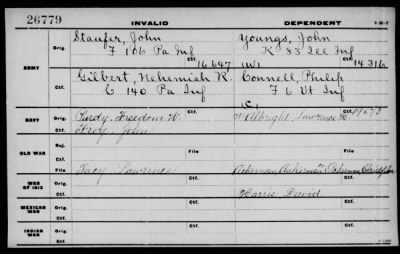 26779 INVALID DEPENDENT
Orig. Staufer, John Youngs, John
F 106 Pa Inf K 83 Ill Inf
ARMY
Ctf. 16647 (W) Ctf. 14316
Gilbert, Nehemiah R. Connell, Philip
C 140 Pa Inf F 6 Vt Inf
Ctf. C
NAVY Orig. Purdy, Freedom W. Albright, Lawrence
Ctf. John
Rej.
OLD WAR
Ctf. File File
WAR OF 1812 Tacy Lawrence Ackerman
Ctf. Ctf.
Harris David
MEXICAN WAR Orig.
Ctf. Ctf.
INDIAN WAR Orig.
Ctf. Ctf.